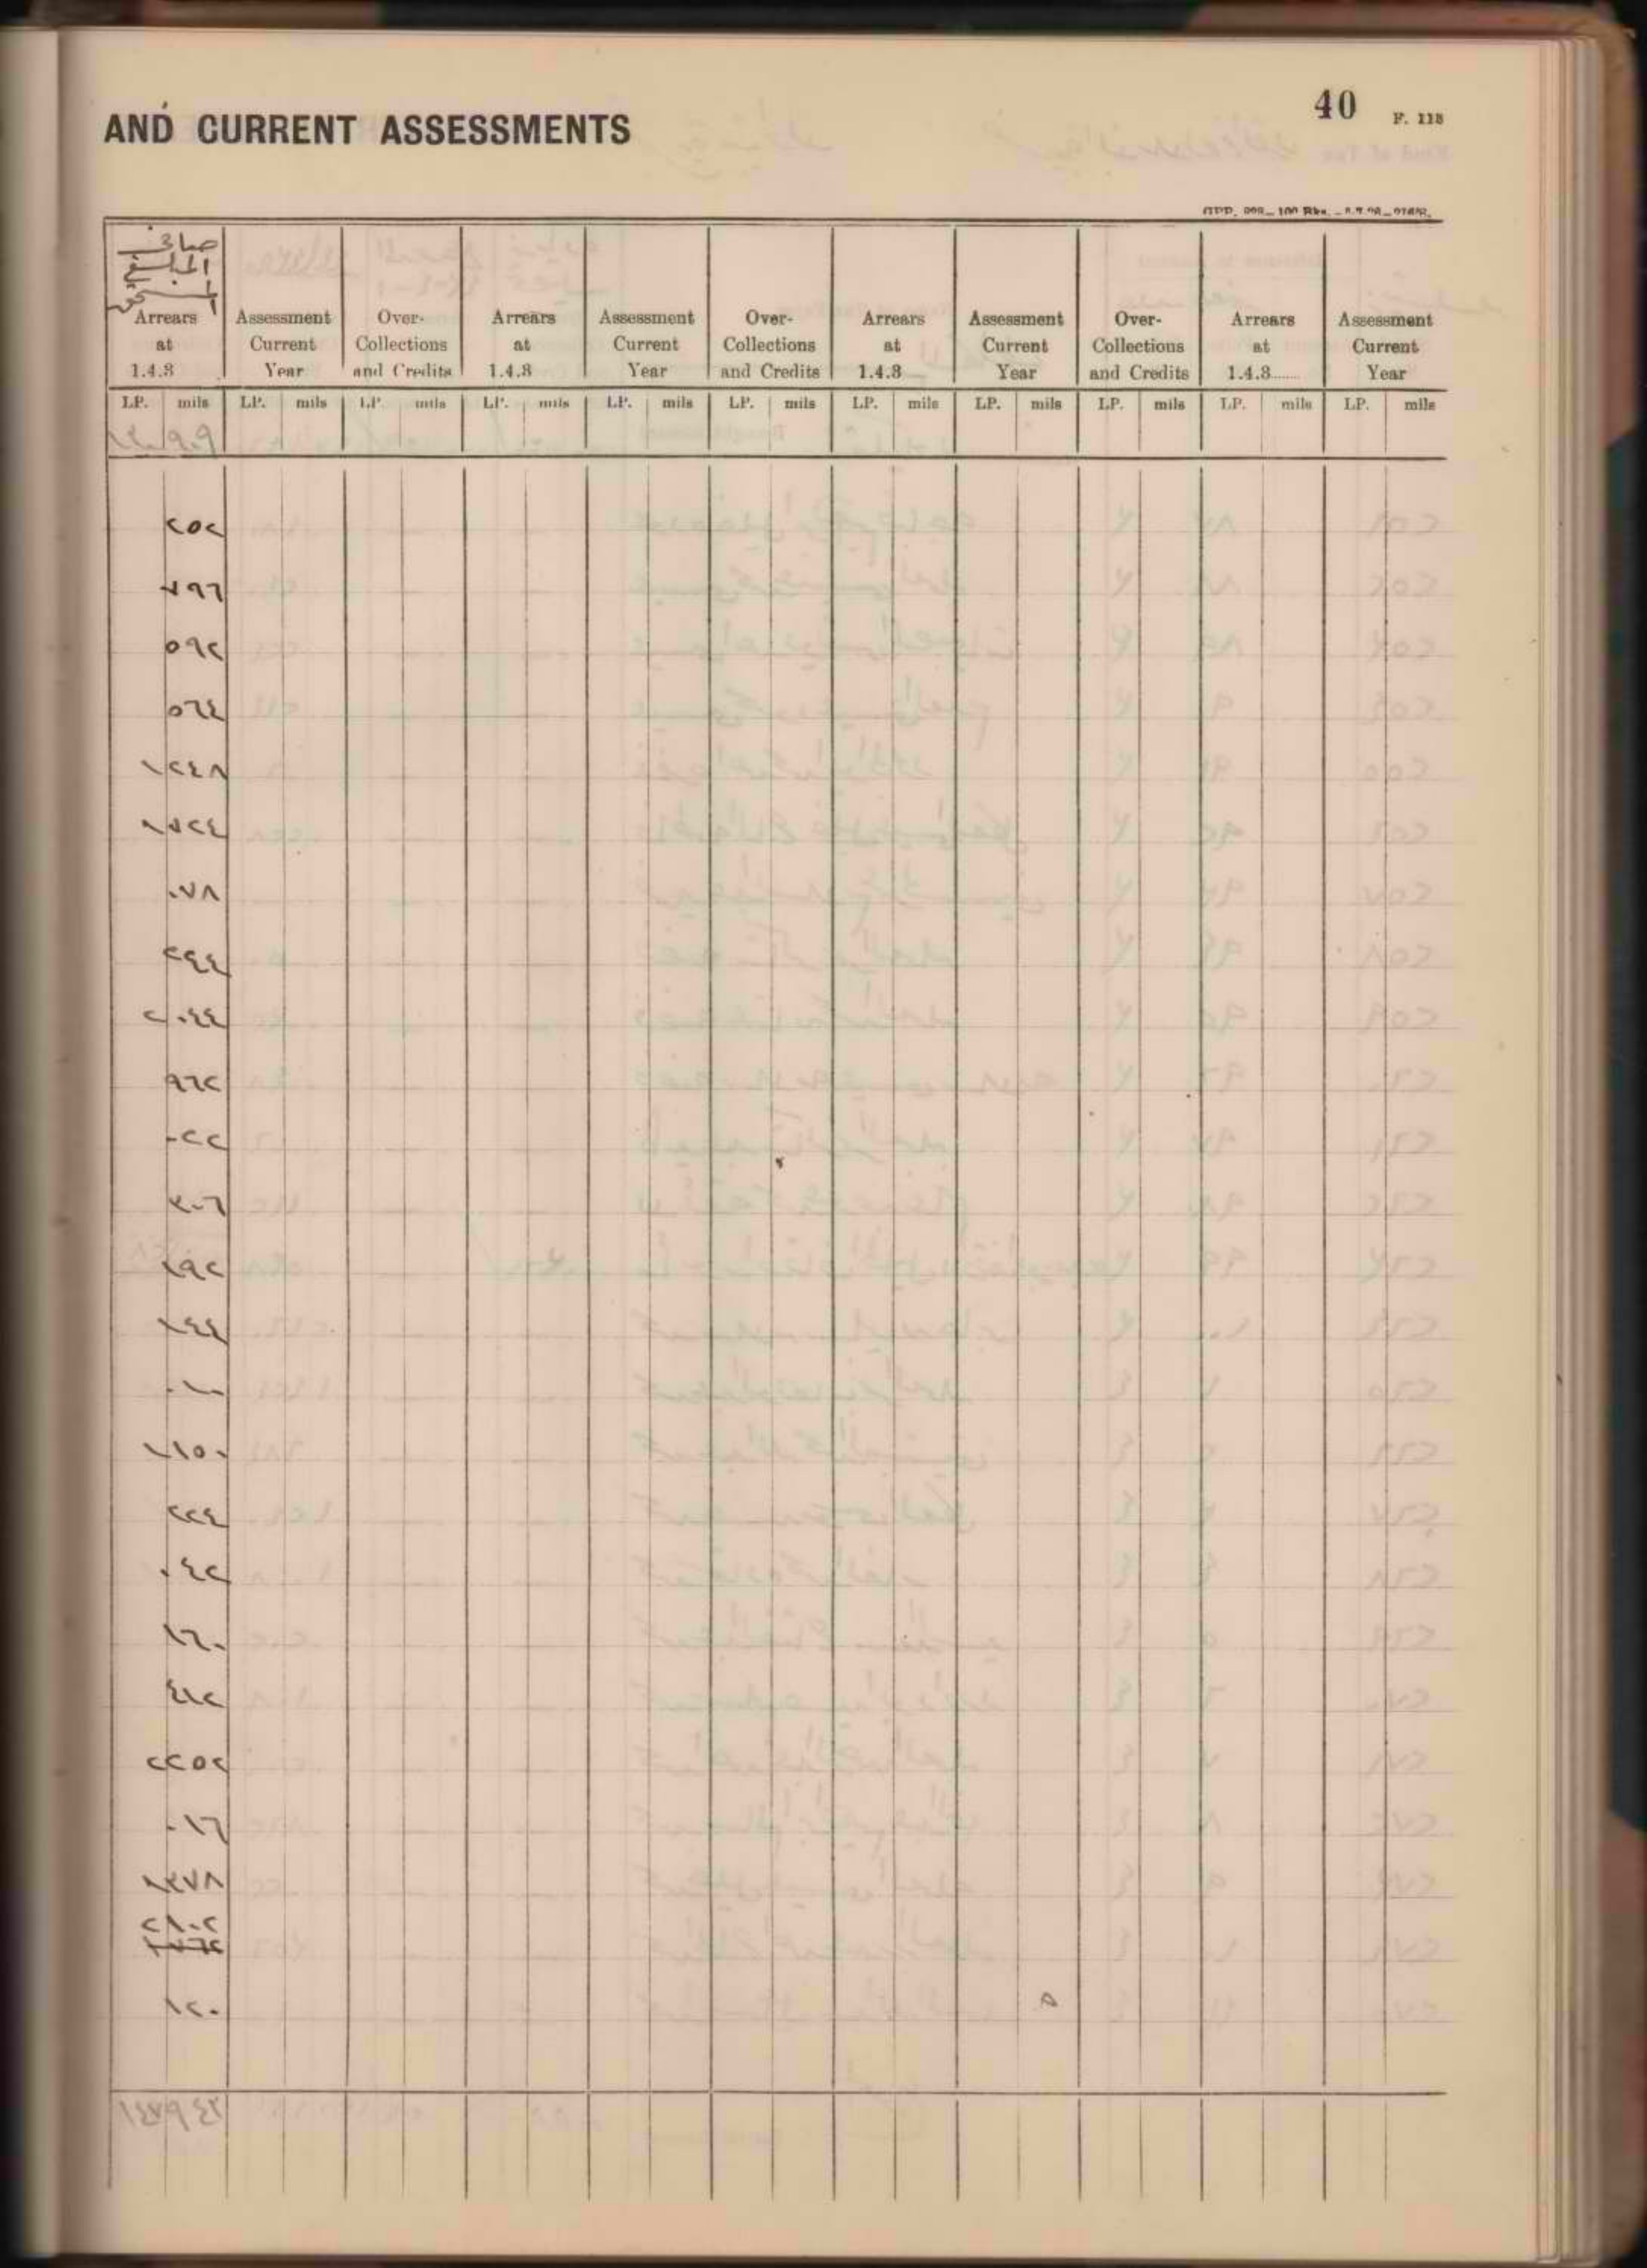 40
F. 118
AND CURRENT ASSESSMENTS
صافي
المبلغ
المستحق
Arrears at 1.4.3 Assessment Current Year Over-Collections and Credits Arrears at 1.4.3 Assessment Current Year Over-Collections and Credits Arrears at 1.4.3 Assessment Current Year Over-Collections and Credits Arrears at 1.4.3...... Assessment Current Year
LP. mils LP. mils LP. mils LP. mils LP. mils LP. mils LP. mils LP. mils LP. mils LP. mils LP. mils
٢٥٢
٧٩٦
٥٩٢
٥٦٤
١٢٤٨
١٧٢٤
٠٧٨
٢٤٤
٢٠٤٤
٩٦٢
٠٢٢
٣٠٦
١٩٢
١٤٤
٠١٠
١١٥٠
٢٢٤
٠٤٢
١٦٠
٤١٢
٢٢٥٢
٠١٦
١٣٧٨
٢٨٠٢
١٢٠
١٤٧٩٤٢